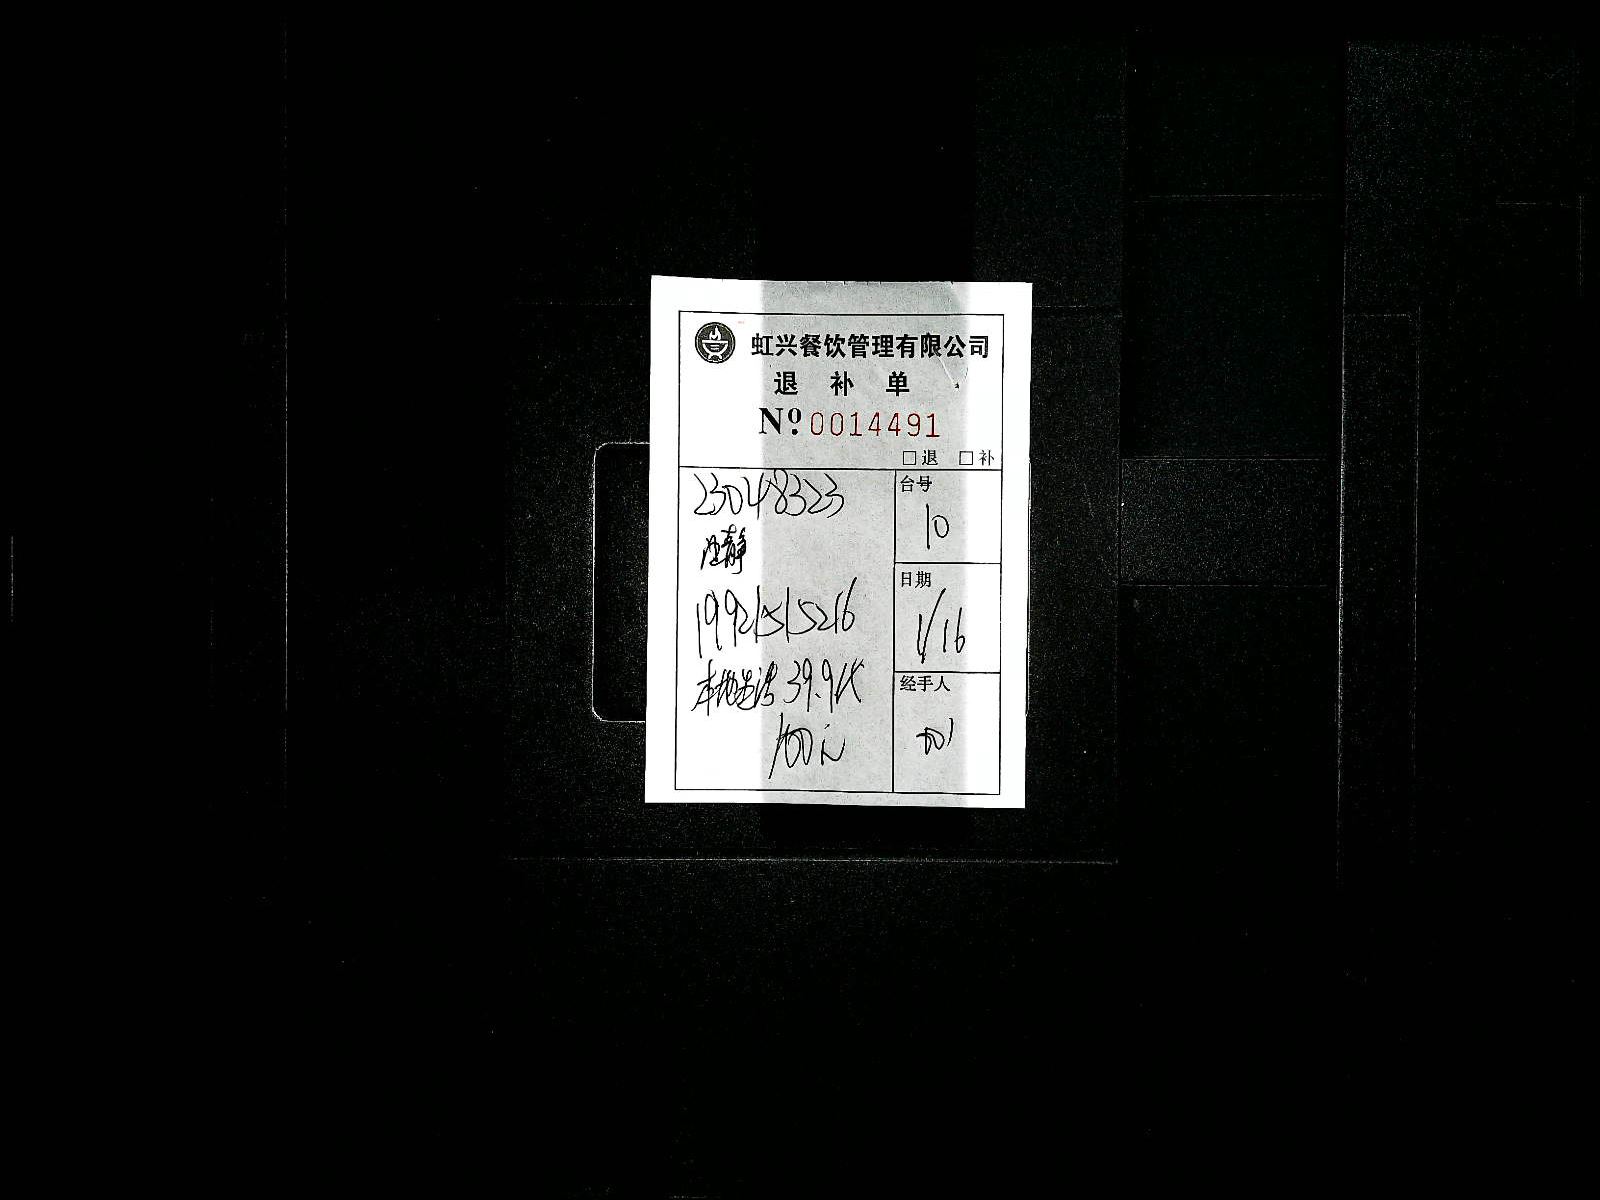 虹兴餐饮管理有限公司
退 补 单
Nº 0014491
□退 □补
23048323
静
台号
10
19921515216
日期
1/16
本地生活 39.9代
100元
经手人